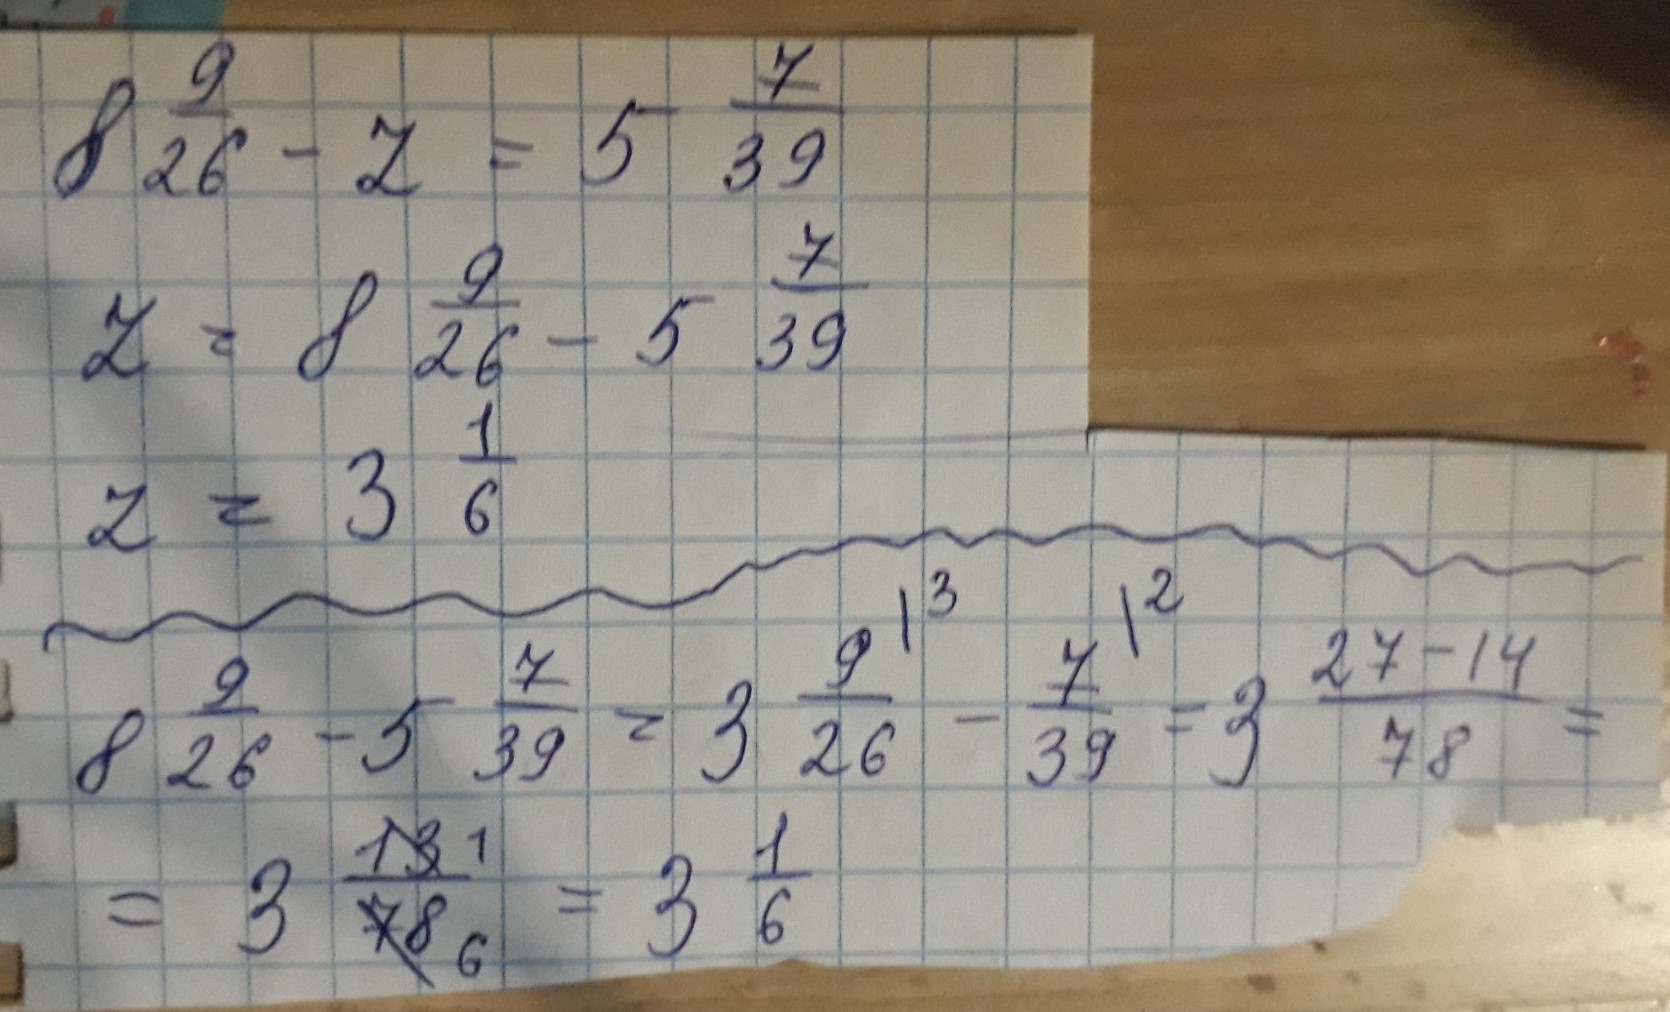 8 9/26 - z = 5 7/39
z = 8 9/26 - 5 7/39
z = 3 1/6
8 9/26 - 5 7/39 = 3 9/26 |3 - 7/39 |2 = 3 27-14/78 =
= 3 13 1/78 6 = 3 1/6